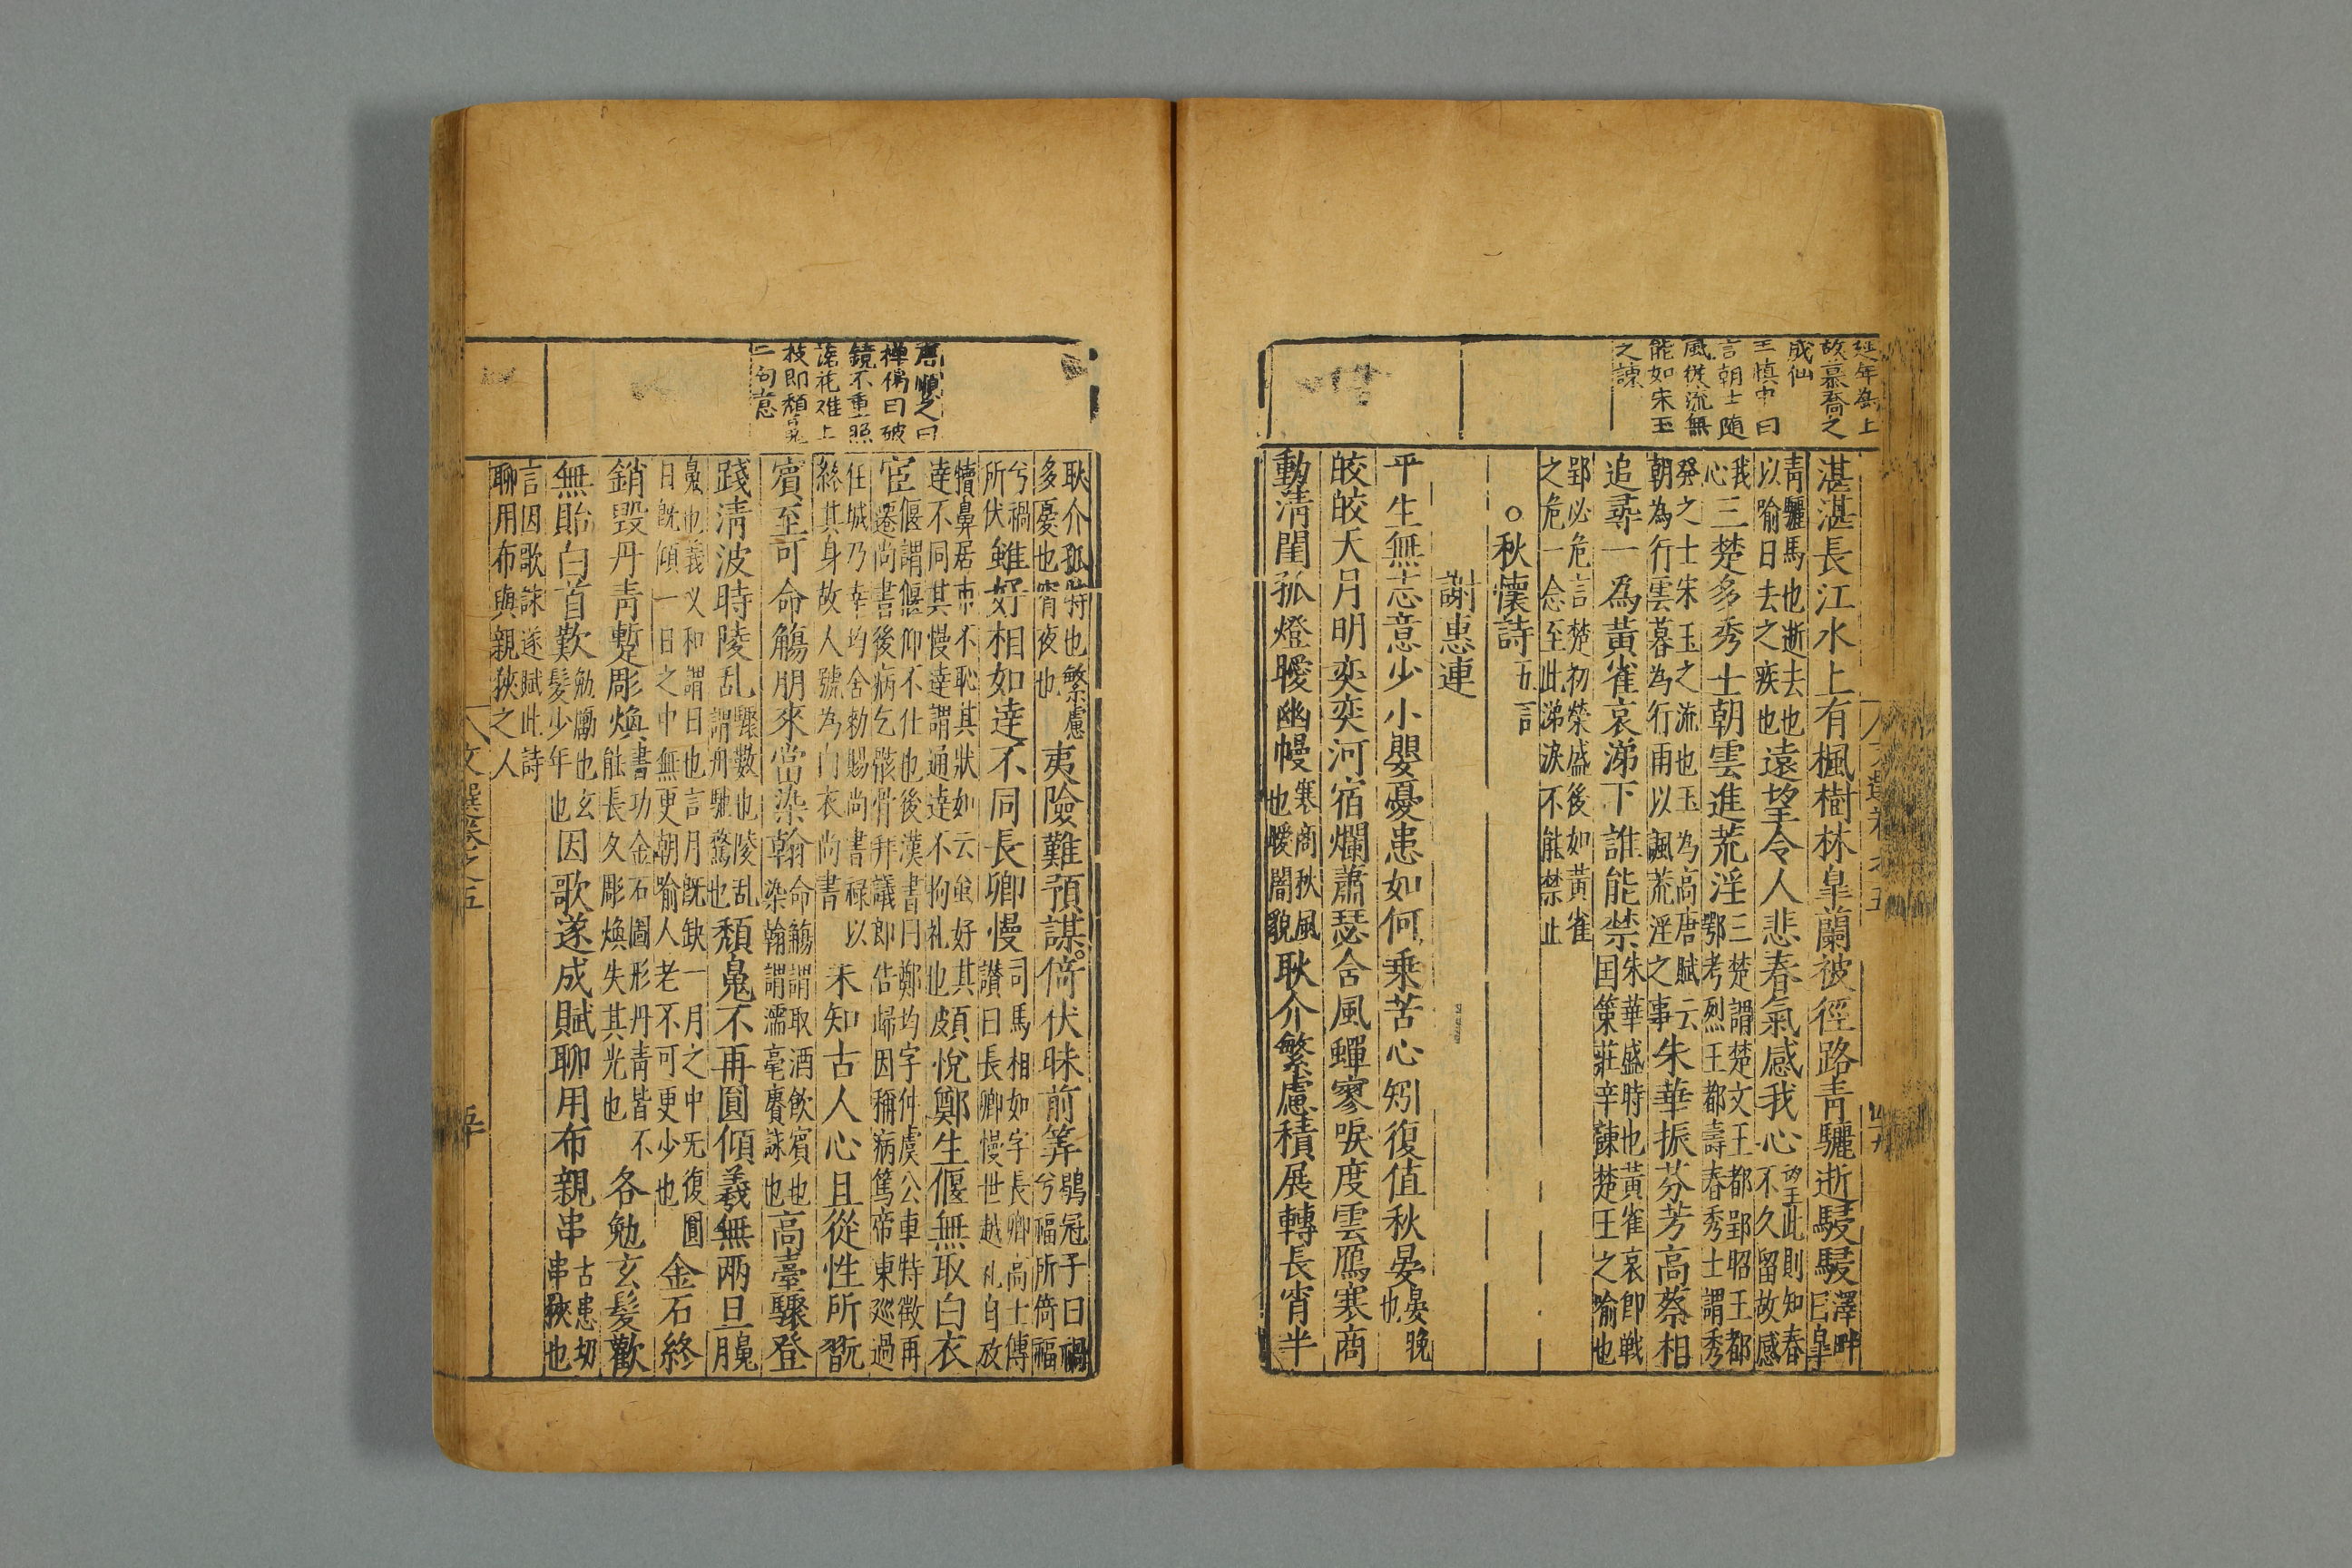 延年無上
故慕喬之
成仙
王慎中曰
言朝士隨
風從流無
能如宋玉
之諫
湛湛長江水上有楓樹林皐蘭被徑路青驪逝駸駸
澤畔
曰皐
青驪馬也逝去也
以喻日去之疾也
遠望令人悲春氣感我心
望王此則知春
不久留故感
我
心
三楚多秀士朝雲進荒淫
三楚謂楚文王都郢昭王都
鄂考烈王都壽春秀士謂秀
発之士宋玉之流也玉為高唐賦云
朝為行雲暮為行雨以諷荒淫之事
朱華振芬芳高蔡相
追尋一為黃雀哀涕下誰能禁
朱華盛時也黃雀哀即戰
国策莊辛諫楚王之喻也
郢必危言楚初榮盛後如黃雀
之危一念至此涕淚不能禁止
○秋懷詩五言
謝惠連
平生無志意少小嬰憂患如何乗苦心矧復值秋晏
晏晚
也
皎皎天月明奕奕河宿爛蕭瑟含風蟬寥唳度雲鴈寒商
動清閨孤燈曖幽幔
寒商秋風
也曖闇貌
耿介繁慮積展轉長宵半
唐順之曰
禅偈曰破
鏡不重照
落花难上
枝即頽䰟
二句意
耿介孤特也繁慮
多憂也宵夜也
夷險難預謀倚伏昧前筭
鶡冠子曰禍
兮福所倚福
兮禍
所伏
雖好相如逹不同長卿慢
司馬相如字長卿高士傳
讃曰長卿慢世越礼自放
犢鼻居市不恥其狀如云虽好其
逹不同其慢逹謂通逹不拘礼也
頗悅鄭生偃無取白衣
宦
偃謂偃仰不仕也後漢書曰鄭均字仲虞公車特徴再
遷尚書後病乞骸骨拜議郎告歸因稱病篤帝東廵過
任城乃幸均舍勑賜尚書禄以
終其身故人號為白衣尚書
未知古人心且從性所翫
賓至可命觴朋來當染翰
命觴謂取酒飲賓也
染翰謂濡毫賡詠也
高臺驟登
踐清波時陵乱
驟數也陵乱
謂舟馳騖也
頽䰟不再圓傾羲無兩旦
䰟也羲乂和謂日也言月旣缺一月之中旡復圓
日旣傾一日之中無更朝喻人老不可更少也
金石終
銷毀丹青蹔彫煥
書功金石圖形丹青皆不
能長久彫煥失其光也
各勉玄髮歡
無貽白首歎
勉勵也玄
髮少年也
因歌遂成賦聊用布親串
古患切
串狹也
言因歌詠遂賦此詩
聊用布與親狹之人
文選卷之五